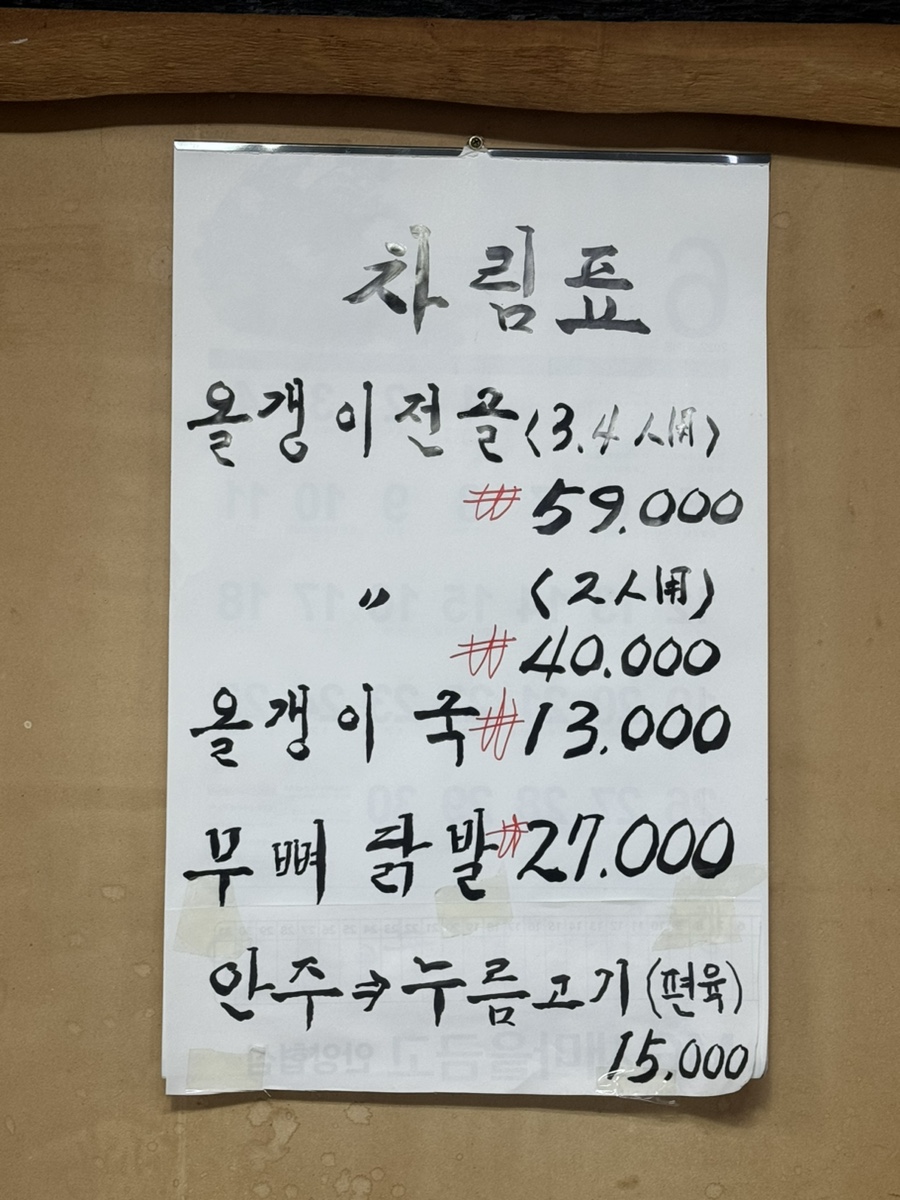 차림표
올갱이전골 <3.4人用>
₩59.000
〃 <2人用>
₩40.000
올갱이 국 ₩13.000
무뼈 닭발 ₩27.000
안주⇒누름고기 (편육)
15,000